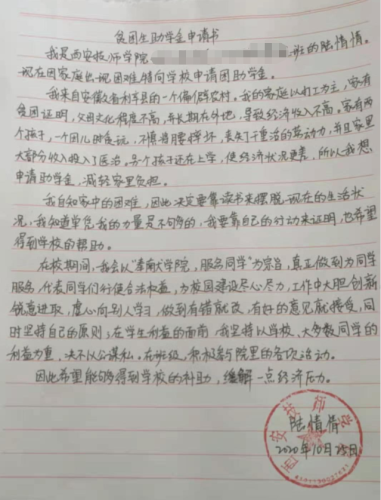 贫困生助学金申请书
我是西安技师学院 班的陆情情。
现在因家庭出现困难,特向学校申请困助学金。
我来自安徽省利辛县的一个偏僻农村。我的家庭以打工为主,家有
贫困证明,父母文化程度不高,并长期在外地,导致经济收入不高,家有两
个孩子,一个因儿时贪玩,不慎将腰摔坏,丧失了重活的劳动力,并且家里
大部分收入投入了医治。另个孩子还在上学,使经济状况更差,所以我想
申请助学金,减轻家里负担。
我自知家中的困难,因此决定要靠读书来摆脱现在的生活状
况,我知道单凭我的力量是不够的,我要靠自己的行动来证明,也希望
得到学校的帮助。
在校期间,我会以“奉献学院,服务同学”为宗旨,真正做到为同学
服务,代表同学们行使合法权益,为校园建设尽心尽力,工作中大胆创新
锐意进取,虚心向别人学习,做到有错就改,有好的意见就接受,同
时坚持自己的原则;在学生利益的面前,我坚持以学校、大多数同学的
利益为重,决不以公谋私。在班级,积极参与院里的各项活动。
因此希望能够得到学校的补助,缓解一点经济压力。
陆情情
2020年10月25日